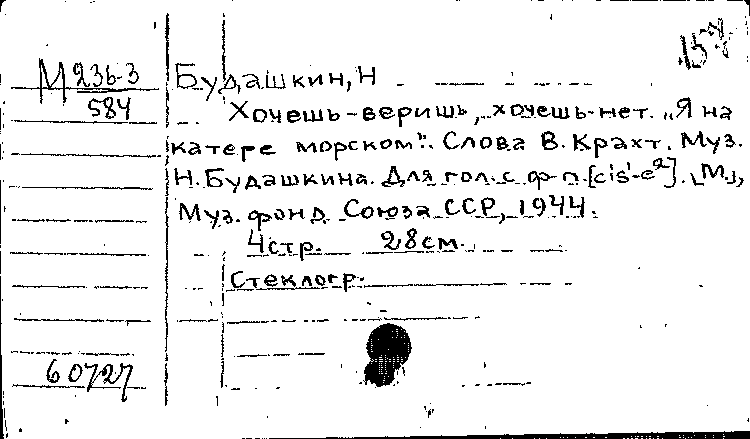 М 236-3
584
Будашкин, Н
Хочешь-веришь, хочешь-нет. „Я на
катере морском". Слова В. Крахт. Муз.
Н. Будашкина. Для гол. с ф-п. [cis¹-e²]. [М.],
Муз. фонд Союза ССР, 1944.
4 стр. 28 см.
Стеклогр.
60727